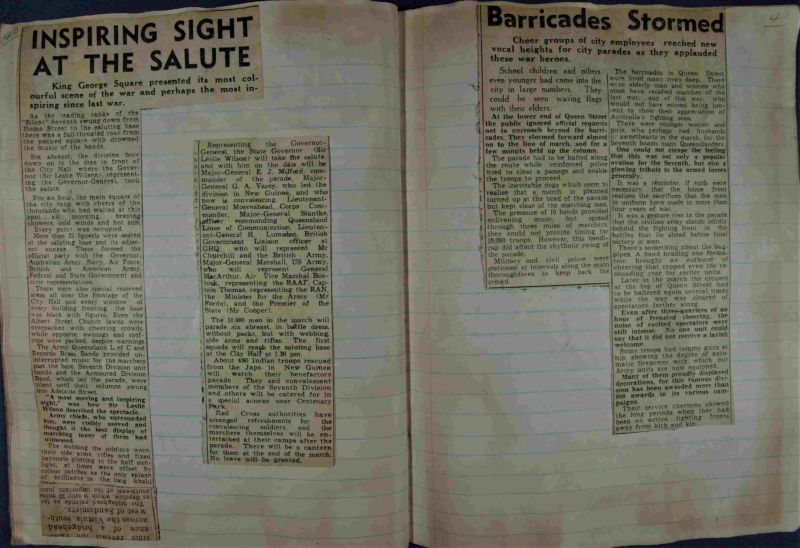 40
INSPIRING SIGHT
AT THE SALUTE
King George Square presented its most col-
ourful scene of the war and perhaps the most in-
spiring since last war.
As the leading ranks of the
"Silent" Seventh swung down from
Roma Street to the saluting base
there was a full-throated roar from
the packed square which drowned
the music of the bands.
Six abreast, the division bore
down on to the dias in front of
the City Hall, where the Gover-
nor (Sir Leslie Wilson), represent-
ing the Governor-General, took
the salute.
For an hour, the main square of
the city rang with cheers of the
thousands who had waited at this
spot all morning, braving
showers, cold winds and hot sun.
Every point was occupied.
More than 75 guests were seated
at the saluting base and its adjac-
ent annexe. These formed the
official party with the Governor,
Australian Army, Navy, Air Force,
British and American Army,
Federal and State Government and
civic representatives.
There were also special reserved
areas all over the frontage of the
City Hall and every window of
every building fronting the base
was black with figures. Even the
Albert Street Church lawns were
overpacked with cheering crowds,
while opposite, awnings and roof-
tops were packed, despite warnings
The Army Queensland L of C and
Records Brass Bands provided un-
interrupted music for the marchers
past the base. Seventh Division unit
bands and the Armoured Division
Band, which led the parade, were
silent until their columns swung
into Adelaide Street.
"A most moving and inspiring
sight," was how Sir Leslie
Wilson described the spectacle.
Army chiefs, who surrounded
him, were visibly moved and
thought it the best display of
marching many of them had
witnessed.
The webbing the soldiers wore,
their side arms, rifles and fixed
bayonets glinting in the half sun-
light, at times were offset by
colour patches as the only splash
of brilliance in the long khaki
south-east of the important
as Baykow, which is only 25 miles
The bridgehead extends as far
west of Sandomierz.
across the Vistula, south-
ence of a bridgehead
Representing the Governor-
General, the State Governor (Sir
Leslie Wilson) will take the salute,
and with him on the dais will be
Major-General E. J. Milford, com-
mander of the parade, Major-
General G. A. Vasey, who led the
division in New Guinea, and who
now is convalescing, Lieutenant-
General Mooreshead, Corps Com-
mander, Major-General Stantke,
officer commanding Queensland
Lines of Communication, Lieuten-
ant-General H. Lumsden, British
Government Liaison officer at
GHQ, who will represent Mr
Churchill and the British Army,
Major-General Marshall, US Army,
who will represent General
MacArthur, Air Vice Marshal Bos-
tock, representing the RAAF, Cap-
tain Thomas, representing the RAN,
the Minister for the Army (Mr
Forde), and the Premier of the
State (Mr Cooper).
The 10,000 men in the march will
parade six abreast, in battle dress,
without packs, but with webbing,
side arms and rifles. The first
squads will reach the saluting base
at the City Hall at 1.30 pm.
About 650 Indian troops rescued
from the Japs. in New Guinea
will watch their benefactors
parade. They and convalescent
members of the Seventh Division
and others will be catered for in
a special annexe near Centenary
Park.
Red Cross authorities have
arranged refreshments for the
convalescing soldiers, and the
marchers themselves will be en-
tertained at their camps after the
parade. There will be a canteen
for them at the end of the march.
No leave will be granted.
40
Barricades Stormed
Cheer groups of city employees reached new
vocal heights for city parades as they applauded
these war heroes.
School children and others
even younger had come into the
city in large numbers. They
could be seen waving flags
with their elders.
At the lower end of Queen Street
the public ignored official requests
not to encroach beyond the barri-
cades. They stormed forward almost
on to the line of march, and for a
few minutes held up the column.
The parade had to be halted along
the route while reinforced police
tried to clear a passage and enable
the troops to proceed.
The inevitable dogs which seem to
realise that a march is planned
turned up at the head of the parade
but kept clear of the marching men.
The presence of 10 bands provided
enlivening music, but spread
through three miles of marchers
they could not provide timing for
10,000 troops. However, this handi-
cap did affect the rhythmic swing of
the parade.
Military and civil police were
stationed at intervals along the main
thoroughfares to keep back the
crowd.
The barricades in Queen Street
were lined many rows deep. There
were elderly men and women who
must have recalled marches of the
last war, and of this war, who
would not have missed being pres-
ent to show their appreciation of
Australia's fighting sons.
There were younger women and
girls, who perhaps had husbands
or sweethearts in the march, for the
Seventh boasts many Queenslanders
One could not escape the feeling
that this was not only a popular
ovation for the Seventh, but also a
glowing tribute to the armed forces
generally.
It was a reminder, if such were
necessary that the home front
realises the sacrifices that the men
in uniform have made in more than
four years of war.
It was a gesture also to the parade
that the civilian army stands solidly
behind the fighting front in the
battles that lie ahead before final
victory is won.
There's something about the bag-
pipes. A band heading one forma-
tion brought an outburst of
cheering that capped even the re-
sounding roar for earlier units.
Later in the march the column
at the top of Queen Street had
to be halted again several times
while the way was cleared of
spectators farther along.
Even after three-quarters of an
hour of frenzied cheering, the
noise of excited spectators were
still intense. No one could
say that it did not receive a lavish
welcome.
Some troops had tommy guns at
hip, showing the degree of auto-
matic firepower with which our
Army units are now equipped.
Many of them proudly displayed
decorations, for this famous divi-
sion has been awarded more than
600 awards in its various cam-
paigns.
Their service chevrons showed
the long periods when they had
been on active fighting fronts
away from kith and kin.